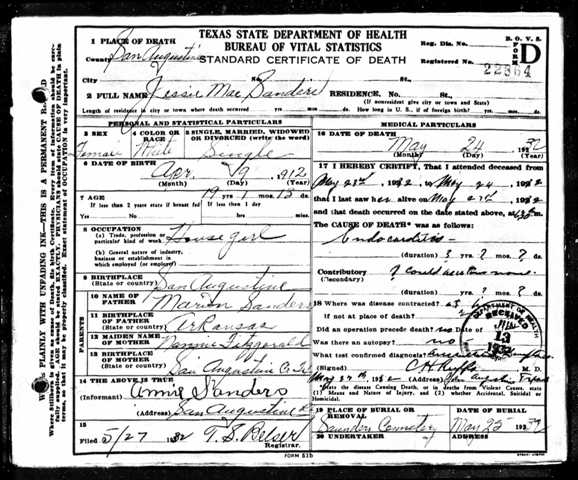 TEXAS STATE DEPARTMENT OF HEALTH
BUREAU OF VITAL STATISTICS
STANDARD CERTIFICATE OF DEATH
B. O. V. S.
FORM D
Reg. Dis. No.
Registered No. 22364
1 PLACE OF DEATH
County San Augustine
City No. St.
2 FULL NAME Jessie Mae Sanders RESIDENCE. No. St.
(If nonresident give city or town and State)
Length of residence in city or town where death occurred yrs. mos. ds. How long in U. S., if of foreign birth? yrs. mos. ds.
PERSONAL AND STATISTICAL PARTICULARS
3 SEX Female
4 COLOR OR RACE White
5 SINGLE, MARRIED, WIDOWED OR DIVORCED (write the word) Single
6 DATE OF BIRTH Apr. 9 1912
(Month) (Day) (Year)
7 AGE 19 yrs 1 mos 15 ds.
If less than 2 years state if breast fed If less than 1 day
Yes No hrs. min.
8 OCCUPATION
(a) Trade, profession or particular kind of work House girl
(b) General nature of industry, business or establishment in which employed (or employer)
9 BIRTHPLACE
(State or country) San Augustine
PARENTS
10 NAME OF FATHER Marion Sanders
11 BIRTHPLACE OF FATHER
(State or country) Arkansas
12 MAIDEN NAME OF MOTHER Nannie Fitzgerald
13 BIRTHPLACE OF MOTHER
(State or country) San Augustine Co.
14 THE ABOVE IS TRUE
(Informant) Annie Sanders
(Address) San Augustine
15
Filed 5/27 1932 T. S. Belser
Registrar.
MEDICAL PARTICULARS
16 DATE OF DEATH
May 24 1932
(Month) (Day) (Year)
17 I HEREBY CERTIFY, That I attended deceased from
May 23rd, 1932, to May 24, 1932
that I last saw her alive on May 1932
and that death occurred on the date stated above, at m.
The CAUSE OF DEATH* was as follows:
Endocarditis
(duration) ? yrs. ? mos. ? ds.
Contributory
(Secondary)
(duration) yrs. mos. ds.
18 Where was disease contracted?
if not at place of death?
Did an operation precede death? no Date of
Was there an autopsy? no
What test confirmed diagnosis?
(Signed) M. D.
May 27th, 1932 (Address)
*State the disease Causing Death, or in Deaths from Violent Causes, state (1) Means and Nature of Injury, and (2) whether Accidental, Suicidal or Homicidal.
DEPARTMENT OF HEALTH
RECEIVED
13
1932
19 PLACE OF BURIAL OR REMOVAL
Saunders Cemetery
DATE OF BURIAL
May 25 1932
20 UNDERTAKER
ADDRESS
FORM 51b